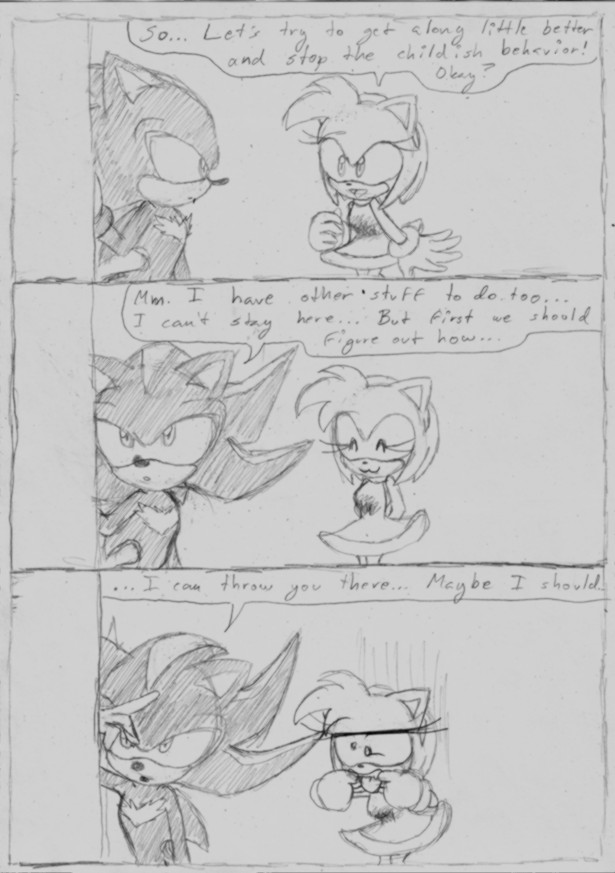 So... Let's try to get along little better
and stop the childish behavior!
Okay?
Mm. I have other stuff to do too...
I can't stay here... But first we should
figure out how...
... I can throw you there... Maybe I should..